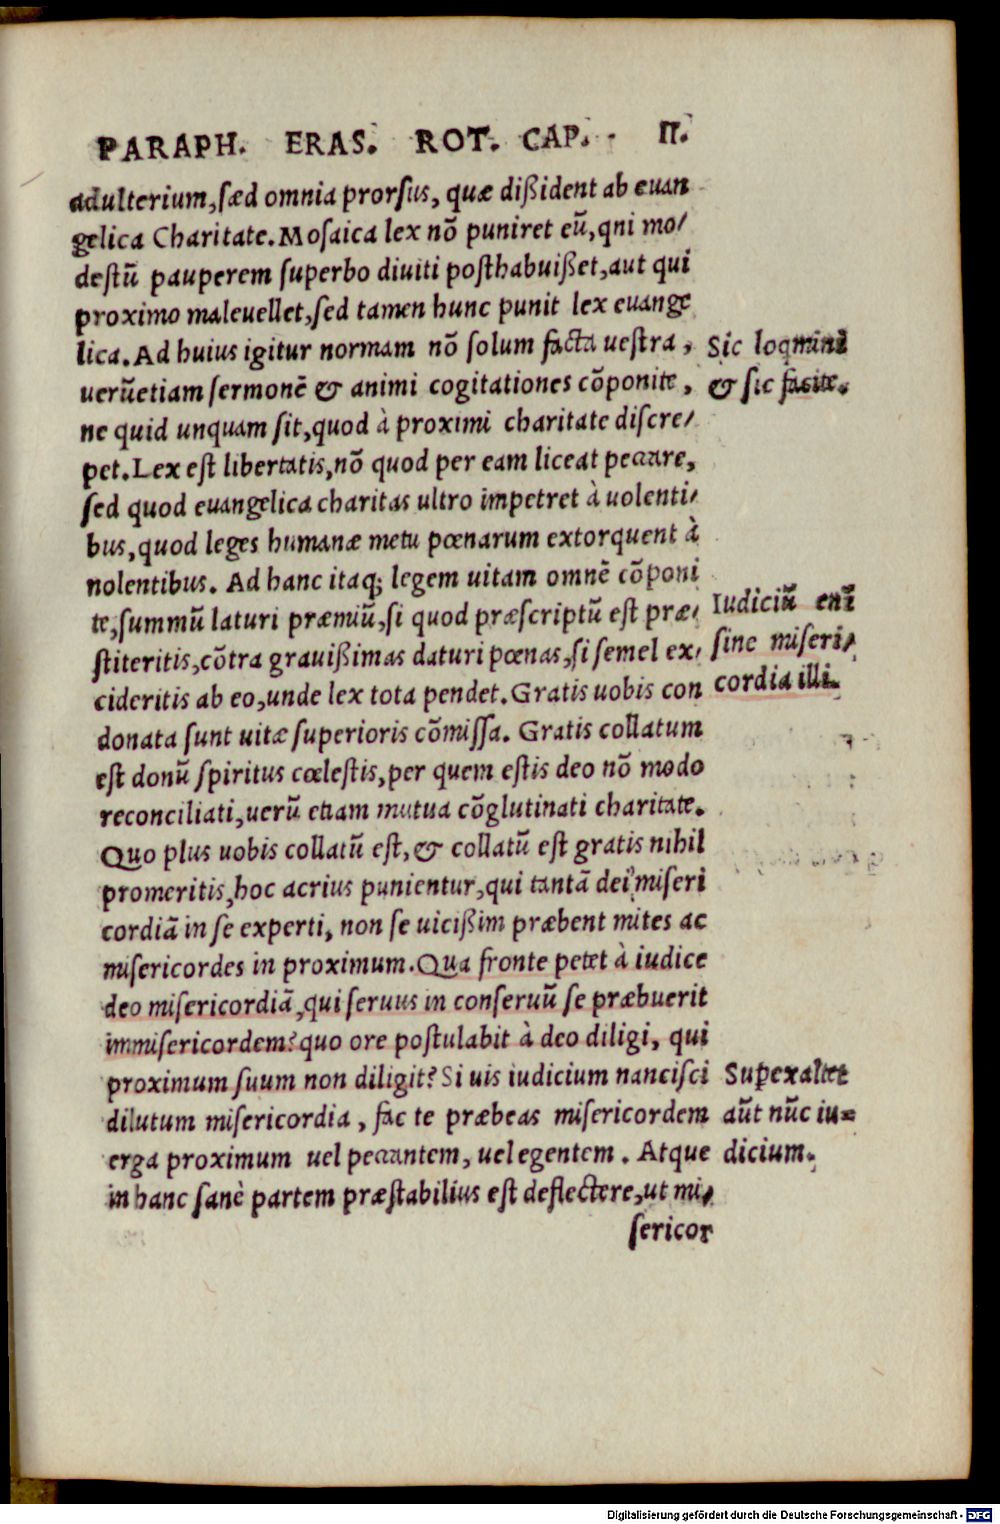 PARAPH. ERAS. ROT. CAP. II.
adulterium, sæd omnia prorsus, quæ dißident ab euan
gelica Charitate. Mosaica lex nō puniret eū, qni mo/
destū pauperem superbo diuiti posthabuißet, aut qui
proximo maleuellet, sed tamen hunc punit lex euange
lica. Ad huius igitur normam nō solum facta uestra,
uerūetiam sermonē & animi cogitationes cōponite,
ne quid unquam sit, quod à proximi charitate discre/
pet. Lex est libertatis, nō quod per eam liceat peccare,
sed quod euangelica charitas ultro impetret à uolenti/
bus, quod leges humanæ metu pœnarum extorquent à
nolentibus. Ad hanc itaq; legem uitam omnē cōponi
te, summū laturi præmiū, si quod præscriptū est præ/
stiteritis, cōtra grauißimas daturi pœnas, si semel ex/
cideritis ab eo, unde lex tota pendet. Gratis uobis con
donata sunt uitæ superioris cōmissa. Gratis collatum
est donū spiritus cœlestis, per quem estis deo nō modo
reconciliati, uerū etiam mutua cōglutinati charitate.
Quo plus uobis collatū est, & collatū est gratis nihil
promeritis, hoc acrius punientur, qui tantā dei miseri
cordiā in se experti, non se uicißim præbent mites ac
misericordes in proximum. Qua fronte petet à iudice
deo misericordiā, qui seruus in conseruū se præbuerit
immisericordem? quo ore postulabit à deo diligi, qui
proximum suum non diligit? Si uis iudicium nancisci
dilutum misericordia, fac te præbeas misericordem
erga proximum uel peccantem, uel egentem. Atque
in hanc sanè partem præstabilius est deflectere, ut mi/
sericor
Sic loqmini
& sic facite.
Iudiciū enī
sine miseri/
cordia illi.
Supexaltet
aūt nūc iu=
dicium.
Digitalisierung gefördert durch die Deutsche Forschungsgemeinschaft - DFG